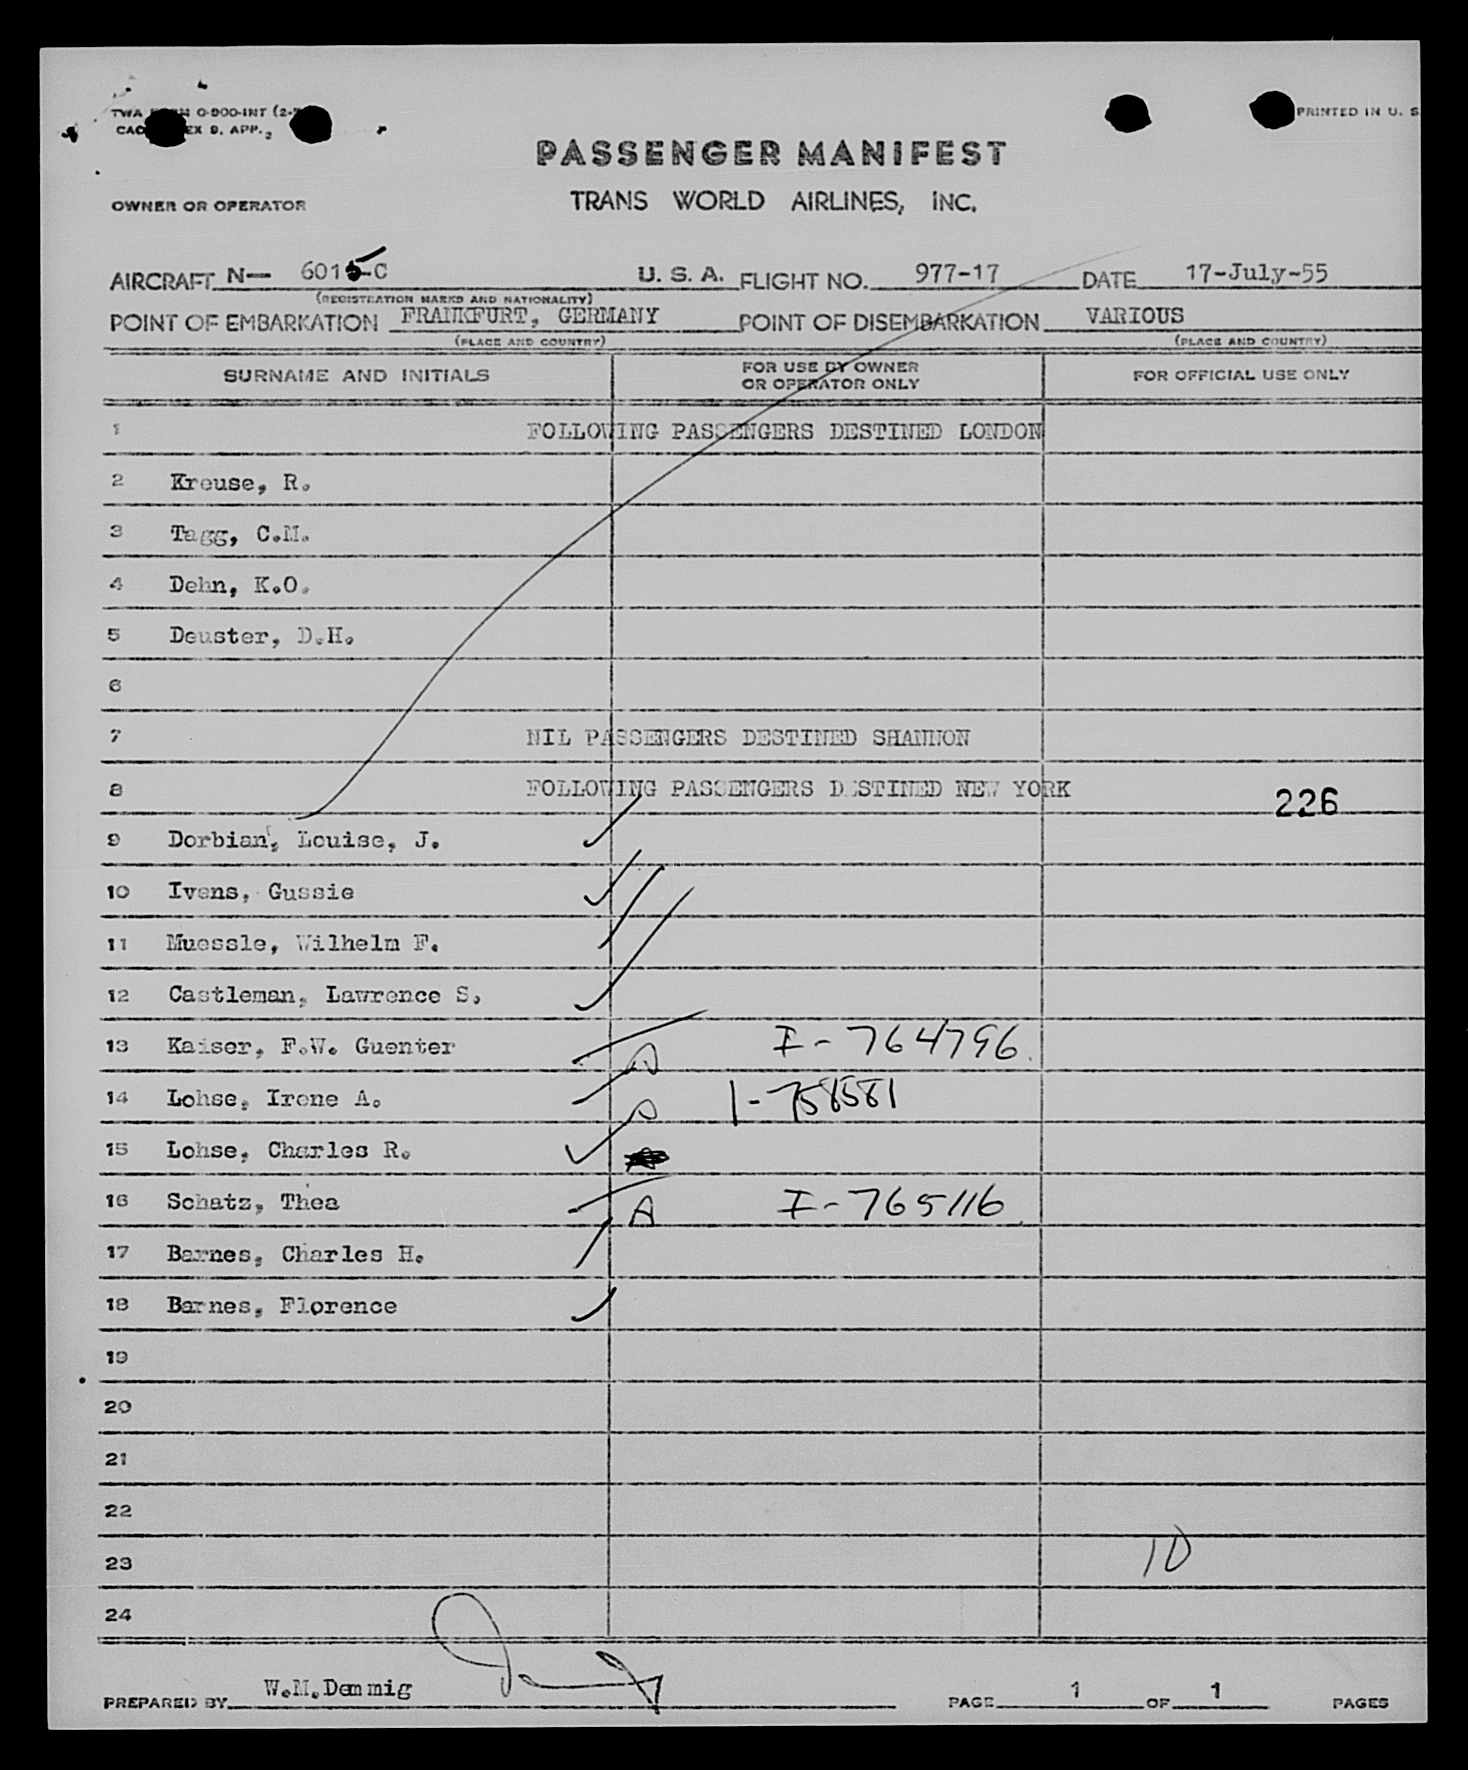 TWA FORM O-900-INT (2-
PRINTED IN U. S
CAO EX 9. APP. 2
PASSENGER MANIFEST
OWNER OR OPERATOR TRANS WORLD AIRLINES, INC.
AIRCRAFT N— 601 -C U. S. A. FLIGHT NO. 977-17 DATE 17-July-55
(REGISTRATION MARKS AND NATIONALITY)
POINT OF EMBARKATION FRANKFURT, GERMANY POINT OF DISEMBARKATION VARIOUS
(PLACE AND COUNTRY) (PLACE AND COUNTRY)
SURNAME AND INITIALS FOR USE BY OWNER OR OPERATOR ONLY FOR OFFICIAL USE ONLY
1 FOLLOWING PASSENGERS DESTINED LONDON
2 Kreuse, R.
3 Tagg, C.M.
4 Dehn, K.O.
5 Deuster, D.H.
6
7 NIL PASSENGERS DESTINED SHANNON
8 FOLLOWING PASSENGERS DESTINED NEW YORK 226
9 Dorbian, Louise, J.
10 Ivens, Gussie
11 Muessle, Wilhelm F.
12 Castleman, Lawrence S.
13 Kaiser, F.W. Guenter A I-764796
14 Lohse, Irene A. A 1-758581
15 Lohse, Charles R.
16 Schatz, Thea A I-765116
17 Barnes, Charles H.
18 Barnes, Florence
19
20
21
22
23 10
24
PREPARED BY W.M.Demmig PAGE 1 OF 1 PAGES